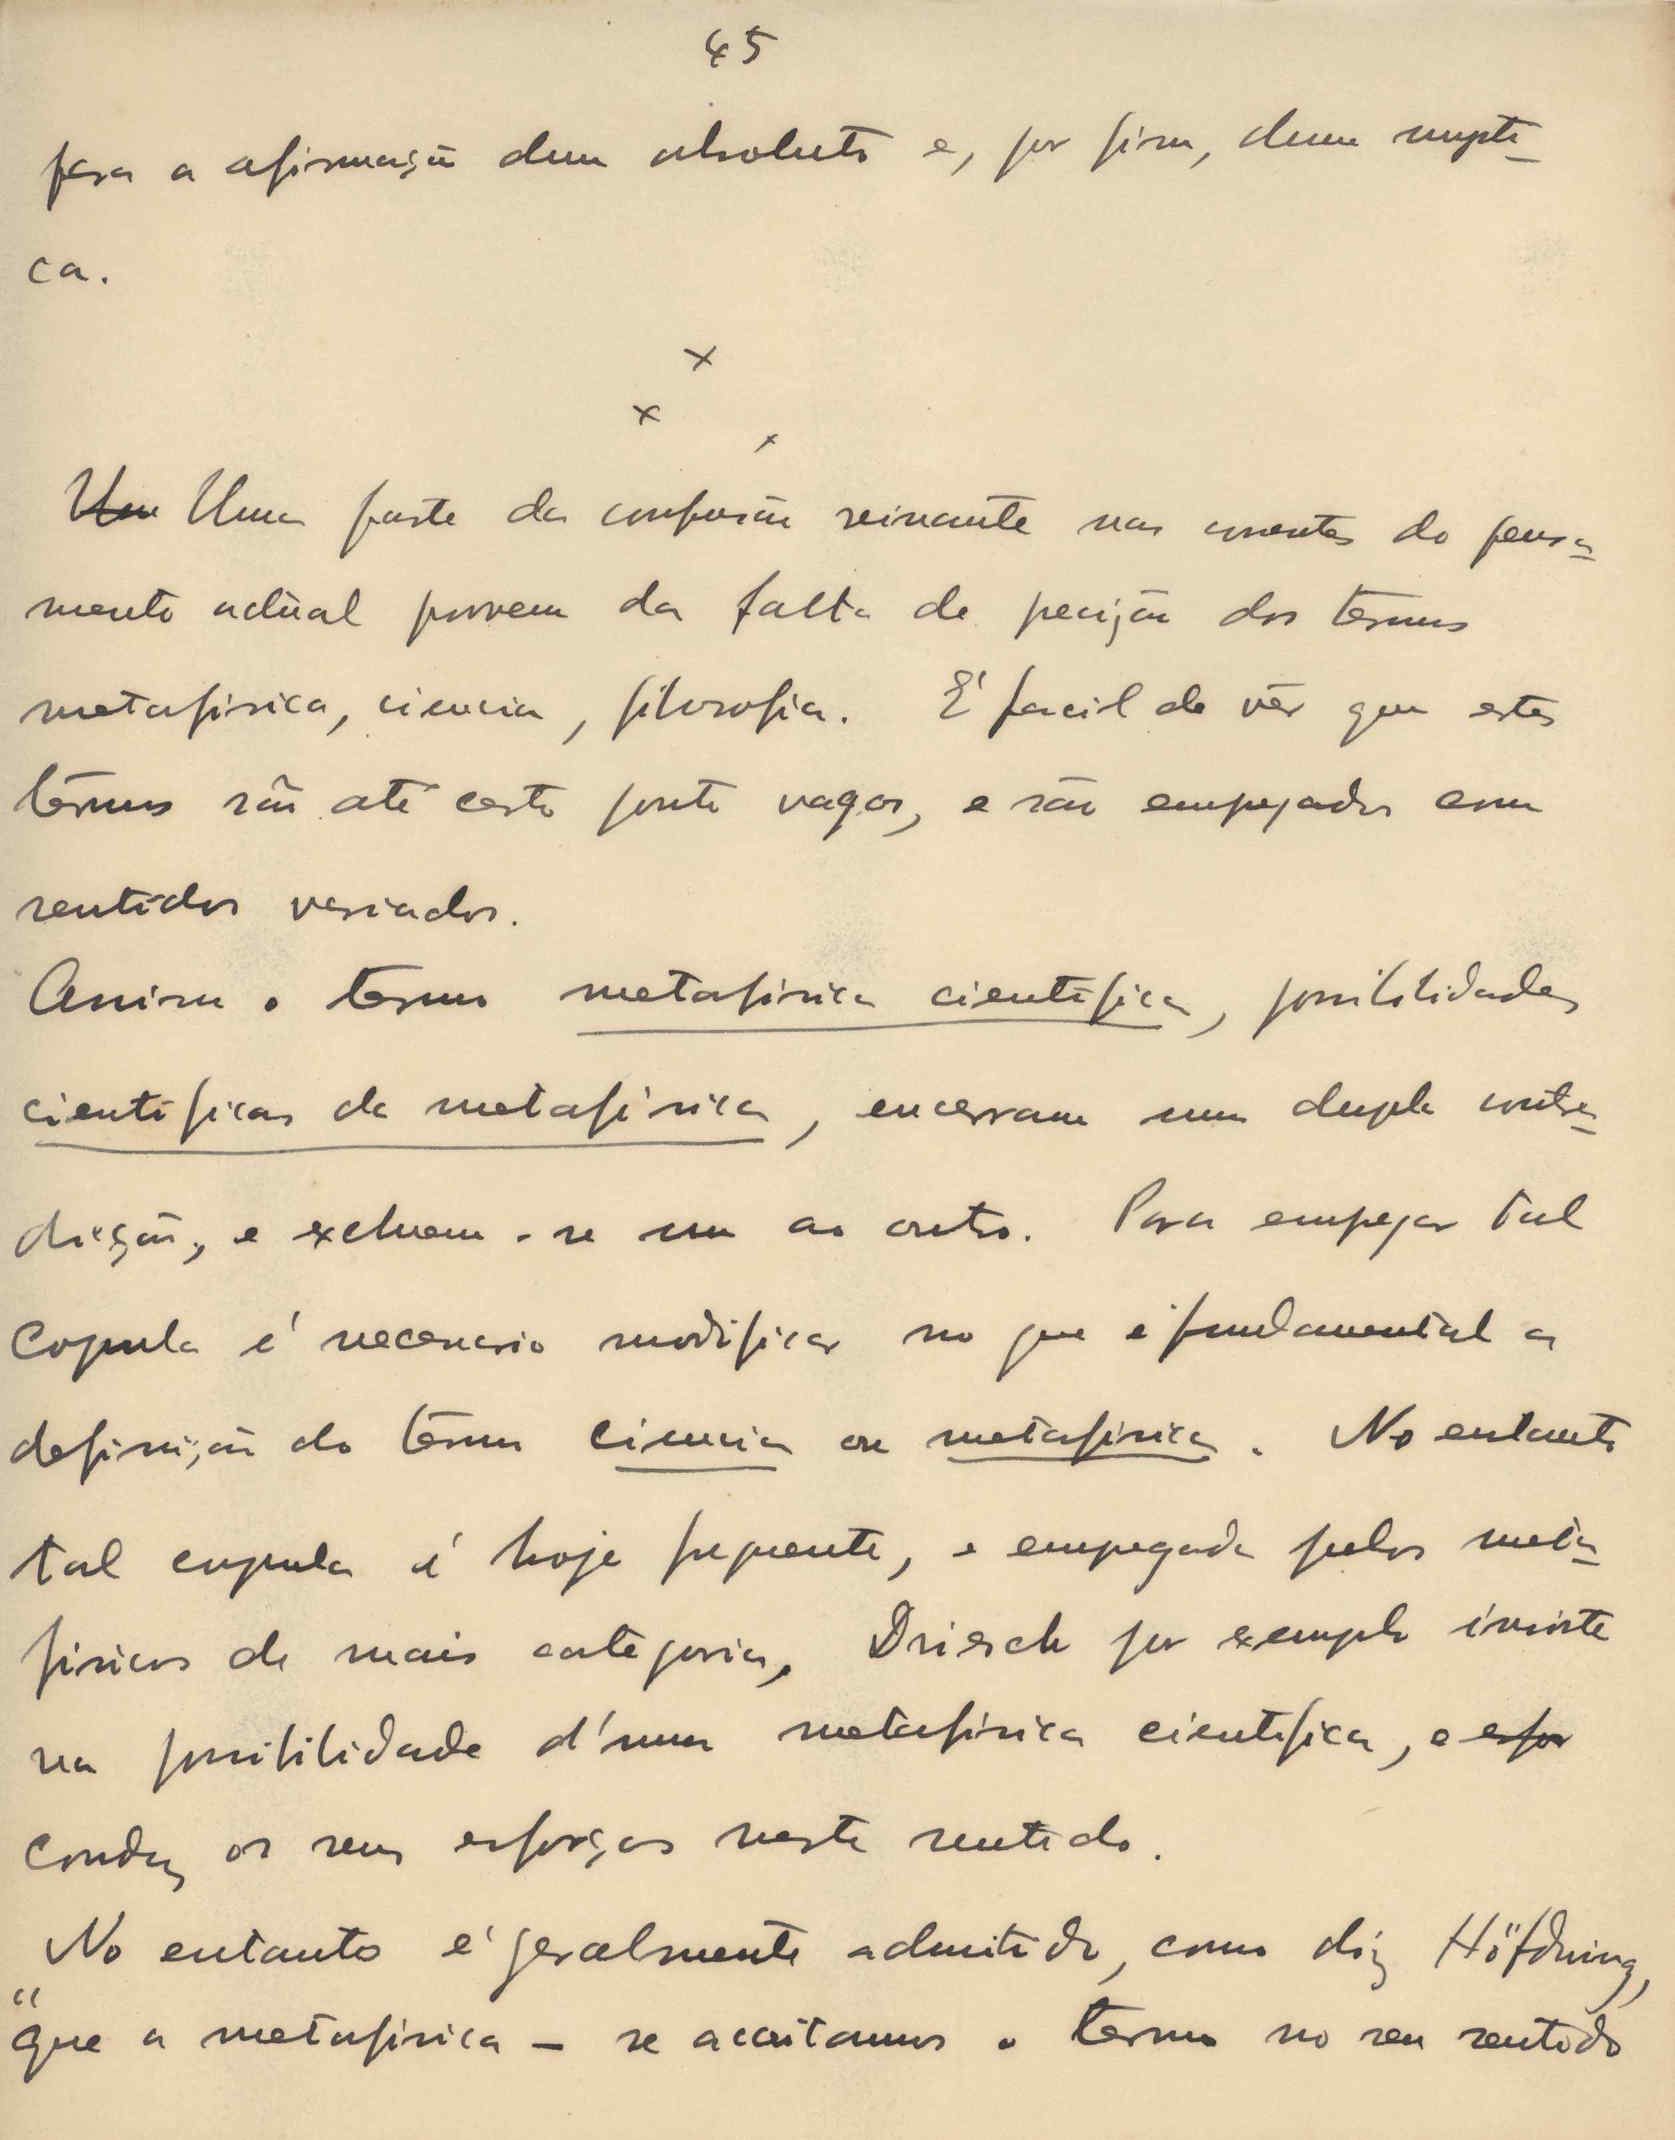 45
para a afirmação dum absoluto e, por fim, duma mysti-
ca.
x
x x
Um Uma parte da confusão reinante nas correntes do pensa-
mento actual provem da falta de precisão dos termos
metafisica, ciencia, filosofia. É facil de vêr que estes
têrmos são até certo ponto vagos, e são empregados com
sentidos variados.
Assim o termo metafisica cientifica, possibilidades
cientificas da metafisica, encerram uma dupla contra-
dicção, e excluem-se um ao outro. Para empregar tal
copula é necessario modificar no que é fundamental a
definição do têrmo ciencia ou metafisica. No entanto
tal cupula é hoje frequente, e empregada pelos meta-
fisicos de mais categoria. Driesch por exemplo insiste
na possibilidade d'uma metafisica cientifica, e esfor
conduz os seus esforços neste sentido.
No entanto é geralmente admitido, como diz Höfding,
"que a metafisica - se aceitamos o termo no seu sentido